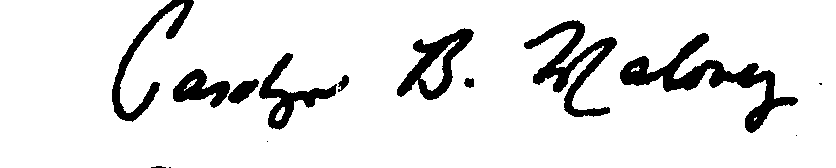 Carolyn B. Maloney